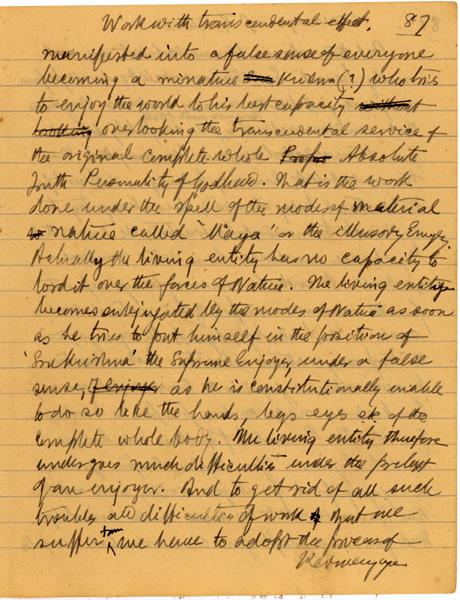 Work with transcendental effect. 87
manifested into a false sense of everyone
becoming a minature Krishna (?) who tries
to enjoy the world to his best capacity without
looking overlooking the transcendental service of
the original complete whole Absolute
Truth Personality of Godhead. That is the work
done under the spell of the modes of material
nature called 'Maya' or the illusory Energy.
Actually the living entity has no capacity to
lord it over the forces of Nature. The living entity
becomes subjugated by the modes of Nature as soon
as he tries to put himself in the position of
'Sri Krishna' the Supreme Enjoyer, under a false
sense, as he is constitutionally unable
to do so like the hands, legs eyes etc of the
complete whole body. The living entity therefore
undergoes much difficulties under the pretext
of an enjoyer. And to get rid of all such
troubles and difficulties of work that one
suffer from we have to adopt the process of
Karmayoga